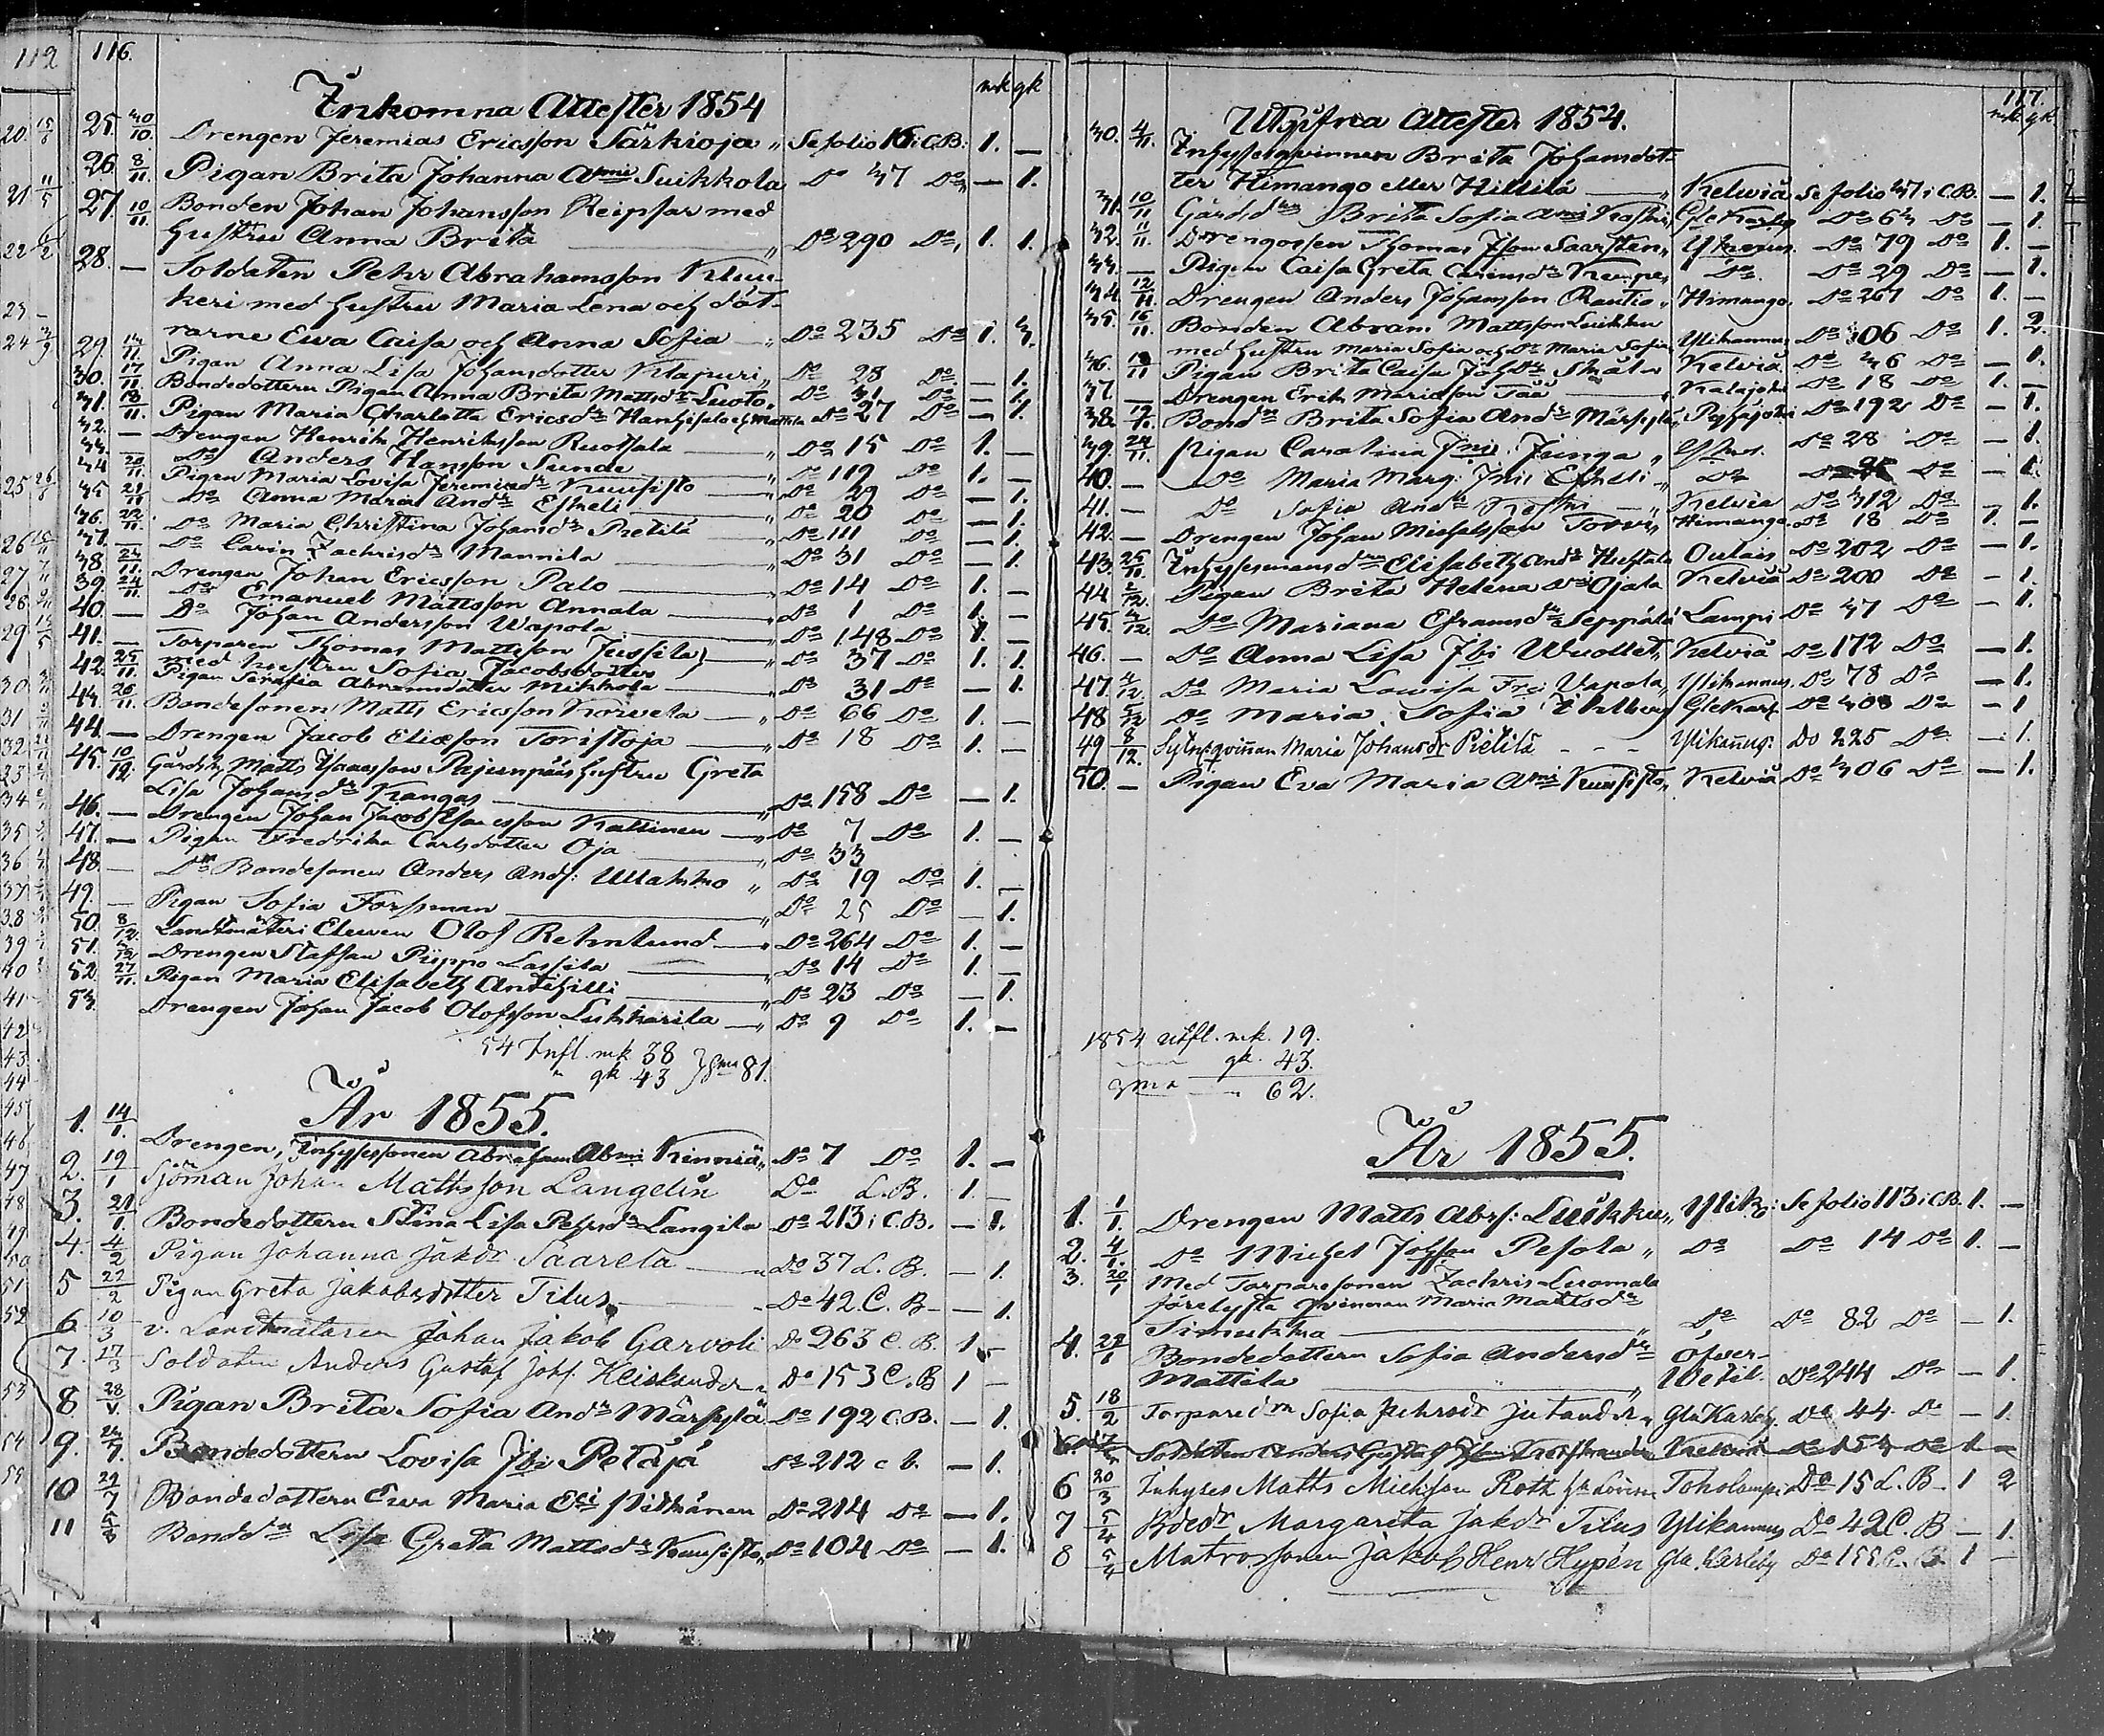 116.
Inkomna Attester 1854
mk gk
25. 30/10. Drengen Jeremias Ericsson Särkioja " Se folio 16 i C.B. 1. —
26. 8/11. Pigan Brita Johanna Ami Suikkola Do 37 Do — 1.
27. 10/11. Bonden Johan Johansson Reipsar med
hustru Anna Brita " Do 290 Do 1. 1.
28. — Soldaten Pehr Abrahamsson
keri med hustru Maria Lena och döt-
rarne Ewa Caisa och Anna Sofia — " Do 235 Do 1. 3.
29. 14/11. Pigan Anna Lisa Johansdotter Klapuri " Do 28 Do — 1.
30. 17/11. Bondedottern Pigan Anna Brita Mattsdr Luoto " Do 31 Do — 1.
31. 18/11. Pigan Maria Charlotta Ericsdr Mattila Do 27 Do — 1.
32. — Drengen Henrik Henriksson Ruotsala — " Do 15 Do 1. —
33. — Do Anders Hansson Sunde — " Do 119 Do 1. —
34. 20/11. Pigan Maria Lovisa Jeremiædr Kuusisto — " Do 29 Do — 1.
35. 21/11. Do Anna Maria Andr Eskeli — " Do 20 Do — 1.
36. 22/11. Do Maria Christina Johansdr Pietilä — " Do 111 Do — 1.
37. — Do Carin Zachrisdr Mannila — " Do 31 Do — 1.
38. 24/11. Drengen Johan Ericsson Palo — " Do 14 Do 1. —
39. 24/11. Do Emanuel Mattsson Annala — " Do 1 Do 1. —
40. — Do Johan Andersson Wapola — " Do 148 Do 1. —
41. — Torparen Thomas Mattsson Jussila
med hustru Sofia Jacobsdotter — " Do 37 Do 1. 1.
42. 25/11. Pigan Serafia Abramsdotter Mikkola — " Do 31 Do — 1.
43. 26/11. Bondesonen Matts Ericsson Korwela — " Do 66 Do 1. —
44. — Drengen Jacob Eliæson Toristoja — " Do 18 Do 1. —
45. 10/12. Matts Isaacsson hustru Greta
Lisa Johansdr Kangas — " Do 158 Do — 1.
46. — Drengen Johan Jacob Isacsson Kattinen — " Do 7 Do 1. —
47. — Pigan Fredrika Carlsdotter Oja — " Do 33
48. — Bondesonen Anders Ands: Ullakko " Do 19 Do 1. —
49. — Pigan Sofia Forsman — " Do 25 Do — 1.
50. 8/12. Landtmäteri Elewen Olof Rehnlund — " Do 264 Do 1. —
51. Drengen Staffan Piippo Lassila — " Do 14 Do 1. —
52. 27/11. Pigan Maria Elisabeth Anttihilli " Do 23 Do — 1.
53. Drengen Johan Jacob Olofsson Lukkarila — " Do 9 Do 1. —
54 Infl. mk 38
" gk 43 } Sma 81.
År 1855.
1. 14/1. Drengen, Inhysessonen Abraham Abmi Kinniä " Do 7 Do 1. —
2. 19/1 Sjöman Johan Mattsson Langelin Do L.B. 1. —
3. 21/1. Bondedottern Stina Lisa Pehrsdr Langila Do 213 i C.B. — 1.
4. 4/2 Pigan Johanna Jakdr Saarela — " Do 37 L.B. — 1.
5 22/2 Pigan Greta Jakobsdotter Tilus — Do 42 C.B. — 1.
6. 10/3 v. Landtmätaren Johan Jakob Garvoli Do 263 C.B. 1 —
7. 17/3 Soldaten Anders Gustaf Johs. " Do 153 C.B 1 —
8. 28/V. Pigan Brita Sofia Andr Märsylä Do 192 C.B. — 1.
9. 22/7. Bondedottern Lovisa Jbi Petäjä Do 212 c b. — 1.
10 29/7 Bondedottern Ewa Maria Eli Do 214 Do — 1.
11 5/8 Bonddn Lisa Greta Mattsdr Kuusisto " Do 104 Do — 1.
117.
Utgifna Attester 1854.
mk gk
30. 4/11. Inhysesqvinnan Brita Johansdot-
ter Himango eller Hillilä — " Kelviå Se folio 37 i C.B. — 1.
31. 10/11 Gårdsdrn Brita Sofia Ami Glekarleby Do 63 Do — 1.
32. 11/11. Drengossen Thomas Json Saarsten " Ykannus. Do 79 Do 1. —
33. — Pigan Caisa Greta Carinsdr Kempe " Do. Do 29 Do — 1.
34. 12/11 Drengen Anders Johansson Rautio " Himango. Do 267 Do 1. —
35. 16/11. Bonden Abram Mattsson Luikku
med hustru Maria Sofia och Dr Maria Sofia " Ylikannus Do 306 Do 1. 2.
36. 18/11 Pigan Brita Caisa Johdr Kelviå Do 36 Do — 1.
37. — Drengen Erik Mariason Tää — " Kalajoki Do 18 Do 1. —
38. Bonddn Brita Sofia Andr Märsylä " Pyhäjoki Do 192 Do — 1.
39. 24/11. Pigan Carolina Jni Junga " Do 28 Do — 1.
40. — Do Maria Marg. Jni Eskeli " Do Do — 1.
41. — Do Sofia Andr — " Kelviå Do 312 Do — 1.
42. — Drengen Johan Michelsson " Himango. Do 18 Do 1. —
43. 25/11. Inhysesmansdrn Elisabeth Andr Oulais Do 202 Do — 1.
44. Pigan Brita Helena Ojala Kelviå Do 200 Do — 1.
45. 3/12. Do Mariana Efraimsdr Seppälä Lampi Do 37 Do — 1.
46. — Do Anna Lisa Jbi Wuollet " Kelviå Do 172 Do — 1.
47. 4/12. Do Maria Lowisa Fri Vapola " Ylikannus. Do 78 Do — 1.
48 Do Maria Sofia Glekarl. Do 308 Do — 1
49 8/12. Sytn:qviñan Maria Johansdr Pietilä - - - Ylikañus. Do 225 Do — 1.
50. — Pigan Eva Maria Ami Kuusisto " Kelviå Do 306 Do — 1.
1854 utfl. mk. 19.
gk. 43.
Sma — " 62.
År 1855.
1. 1/1. Drengen Matts Abrs: Luikku " Ylik: Se folio 113 i C.B. 1. —
2. 4/1. Do Michel Johsson Pesola " Do Do 14 Do 1. —
3. 20/1 Med Torparesonen Zachris Luomala
förelysta qvinnan Maria Mattsdr
Timukka — " Do Do 82 Do — 1.
4. 22/1 Bondedottern Sofia Andersdr Öfver-
Mattila " Wetil. Do 244 Do — 1.
5. 18/2 Torparedrn Sofia Pehrsdr " Gla Karleby. Do 44. Do — 1.
Soldaten Anders Gustaf Kelviå Do 153 Do 1 —
6 20/3 Inhyses Matts Michsson Roth Toholampi Do 15 L.B. 1 2
7 5/4 Bdedr Margareta Jakdr Tilus Ylikannus Do 42 C.B — 1.
8 5/4 Matrossonen Jakob Henr Hypén Gla Karleby Do 155 C.B. 1 —